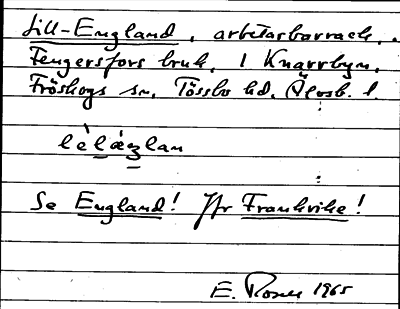 Lill-England, arbetarbarrack,
Fengersfors bruk, i Knarrbyn,
Fröskogs sn, Tössbo hd, Älvsb. l.
Se England! Jfr Frankrike!
E. Rosell 1965